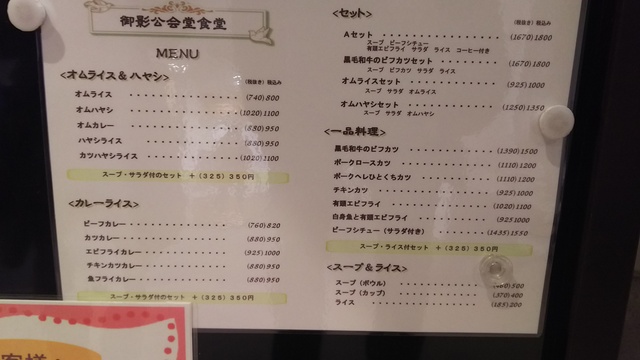 御影公会堂食堂
MENU
<オムライス&ハヤシ>
(税抜き) 税込み
オムライス (740)800
オムハヤシ (1020)1100
オムカレー (880)950
ハヤシライス (880)950
カツハヤシライス (1020)1100
スープ・サラダ付のセット +(325)350円
<カレーライス>
ビーフカレー (760)820
カツカレー (880)950
エビフライカレー (925)1000
チキンカツカレー (880)950
魚フライカレー (880)950
スープ・サラダ付のセット +(325)350円
<セット>
(税抜き) 税込み
Aセット (1670)1800
スープ ビーフシチュー
有頭エビフライ サラダ ライス コーヒー付き
黒毛和牛のビフカツセット (1670)1800
スープ ビフカツ サラダ ライス
オムライスセット (925)1000
スープ サラダ オムライス
オムハヤシセット (1250)1350
スープ サラダ オムハヤシ
<一品料理>
黒毛和牛のビフカツ (1390)1500
ポークロースカツ (1110)1200
ポークヘレひとくちカツ (1110)1200
チキンカツ (925)1000
有頭エビフライ (1020)1100
白身魚と有頭エビフライ (925)1000
ビーフシチュー(サラダ付き) (1435)1550
スープ・ライス付セット +(325)350円
<スープ&ライス>
スープ(ボウル) 500
スープ(カップ) (370)400
ライス (185)200